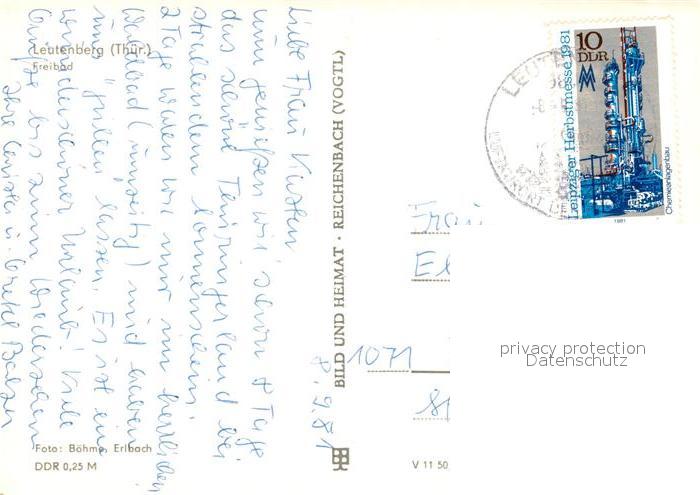 Leutenberg (Thür.)
Freibad
Liebe Frau Kirsten
nun genießen wir schon 8 Tage
das schöne Thüringerland bei
strahlendem Sonnenschein.
2 Tage waren wir nur im herrlichen
Waldbad (umseitig) und haben
uns grillen lassen. Es ist ein
wunderschöner Urlaub! Viele
Grüße bis zum Wiedersehen
Ihre u. Balzer
8.9.81
Foto: Böhme, Erlbach
DDR 0,25 M
BILD UND HEIMAT · REICHENBACH (VOGTL)
V 11 50
LEUT
10
DDR
Leipziger Herbstmesse 1981
Chemieanlagenbau
1981
Frau
El
1071
privacy protection
Datenschutz